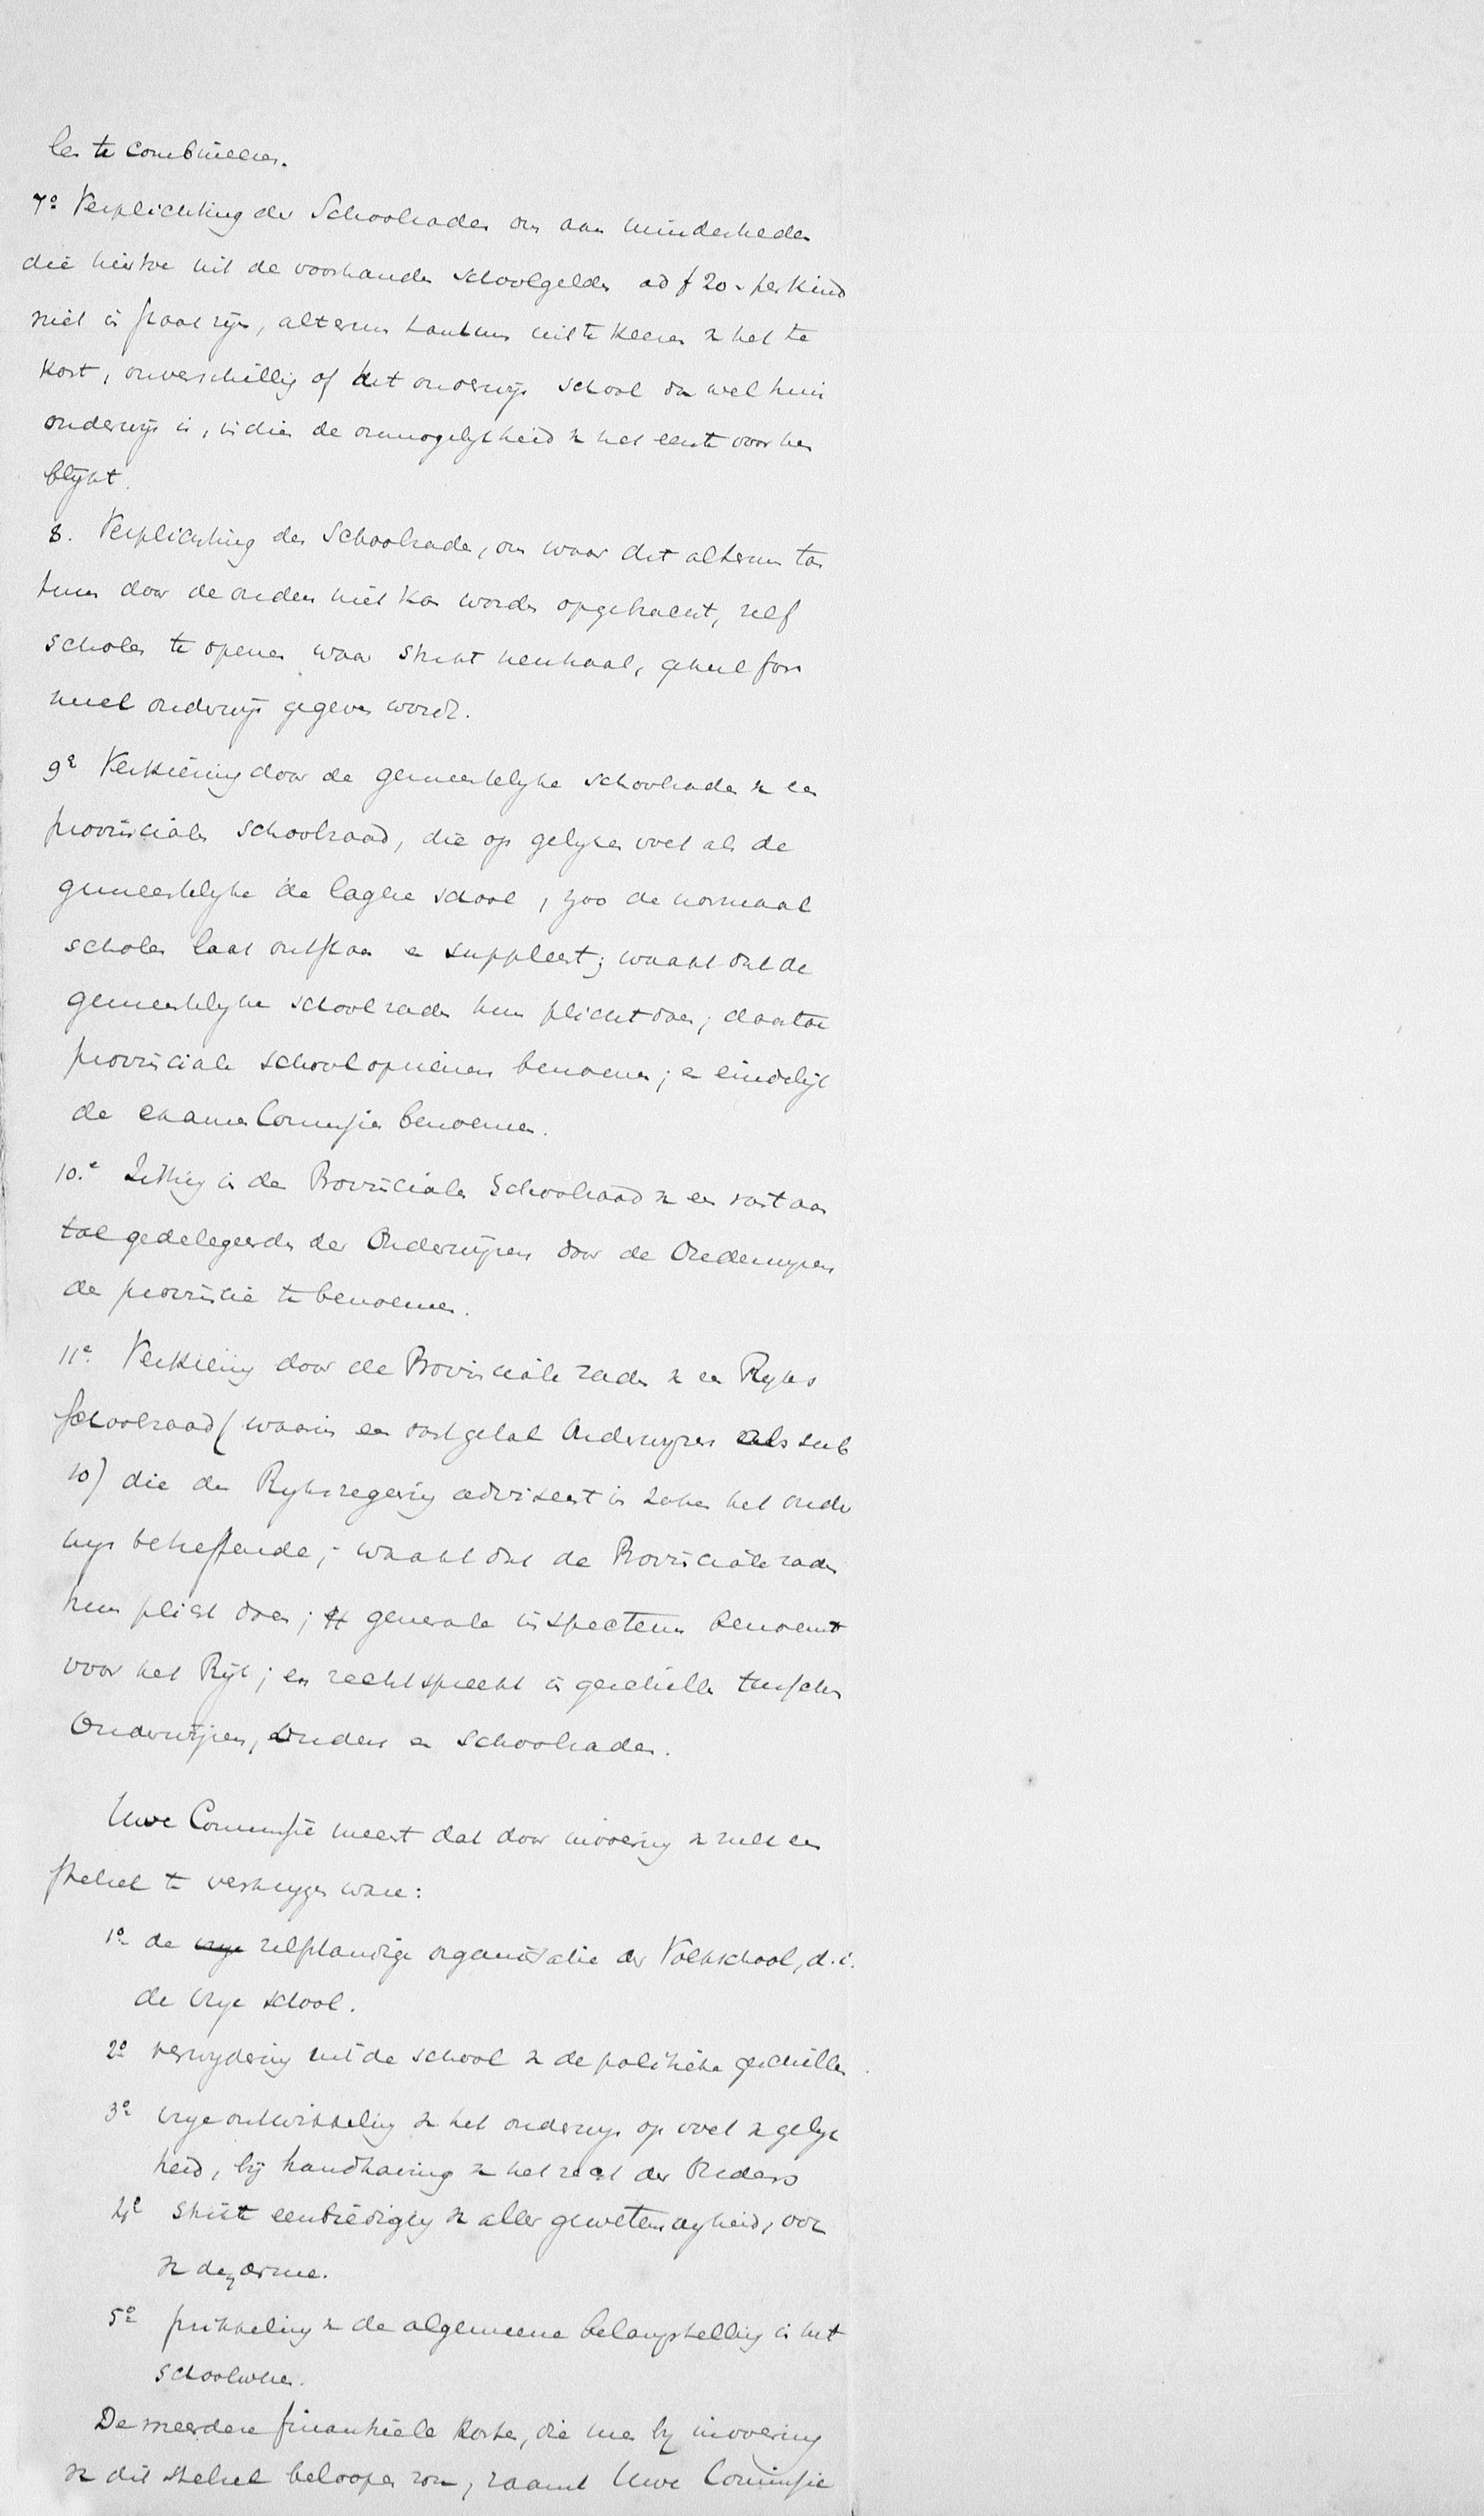 len te combineeren.
7º Verplichting der Schoolraden om aan minderheden
die hiertoe uit de voorhanden schoolgelden ad f 20 - per kind
niet in staat zijn, alterum tantum uit te keeren v het te
kort, onverschillig of het onderwijs school dan wel huis
onderwijs is, indien de onmogelijkheid v het eerste voor hen
blijkt.
8. Verplichting der Schoolraden, om waar dit alterum tan
tum door de ouders niet kan worden opgebracht, zelf
scholen te openen waar strikt neutraal, geheel for
meel onderwijs gegeven wordt.
9º Verkiezing door de gemeentelijke schoolraden v een
provincialen schoolraad, die op gelijken voet als de
gemeentelijke de lagere school, zoo de normaal
scholen laat ontstaan en suppleert; waakt dat de
gemeentelijke schoolraden hun plicht doen; daartoe
provinciale schoolopzieners benoemen; en eindelijk
de examen Commissien benoemen.
10.e Zitting in de Provinciale Schoolraad v een vast aan
tal gedelegeerden der Onderwijzers door de Onderwijzers
der provincie te benoemen.
11e. Verkiezing door de Provinciale raden v een Rijks
schoolraad (waarin een vast getal Onderwijzers als sub
10) die de Rijksregering adviseert in zaken het onder
wijs betreffende; waakt dat de Provinciale raden
hun plicht doen; generale inspecteurs benoemt
voor het Rijk; en recht spreekt in geschillen tusschen
Onderwijzers, Ouders en Schoolraden.
Uwe Commissie meent dat door invoering v zulk een
stelsel te verkrijgen ware:
1º de vrije zelfstandige organisatie der Volksschool, d.i.
de vrije school.
2º verwijdering uit de school v de politieke geschillen.
3º vrije ontwikkeling v het onderwijs op voet v gelijk
heid, bij handhaving v het recht der Ouders
4º strikt eerbiediging v aller gewetensvrijheid, ook
v de arme.
5º prikkeling v de algemeene belangstelling in het
schoolwezen.
De meerdere finantieele kosten, die men bij invoering
v dit stelsel beloopen zou, raamt Uwe Commissie